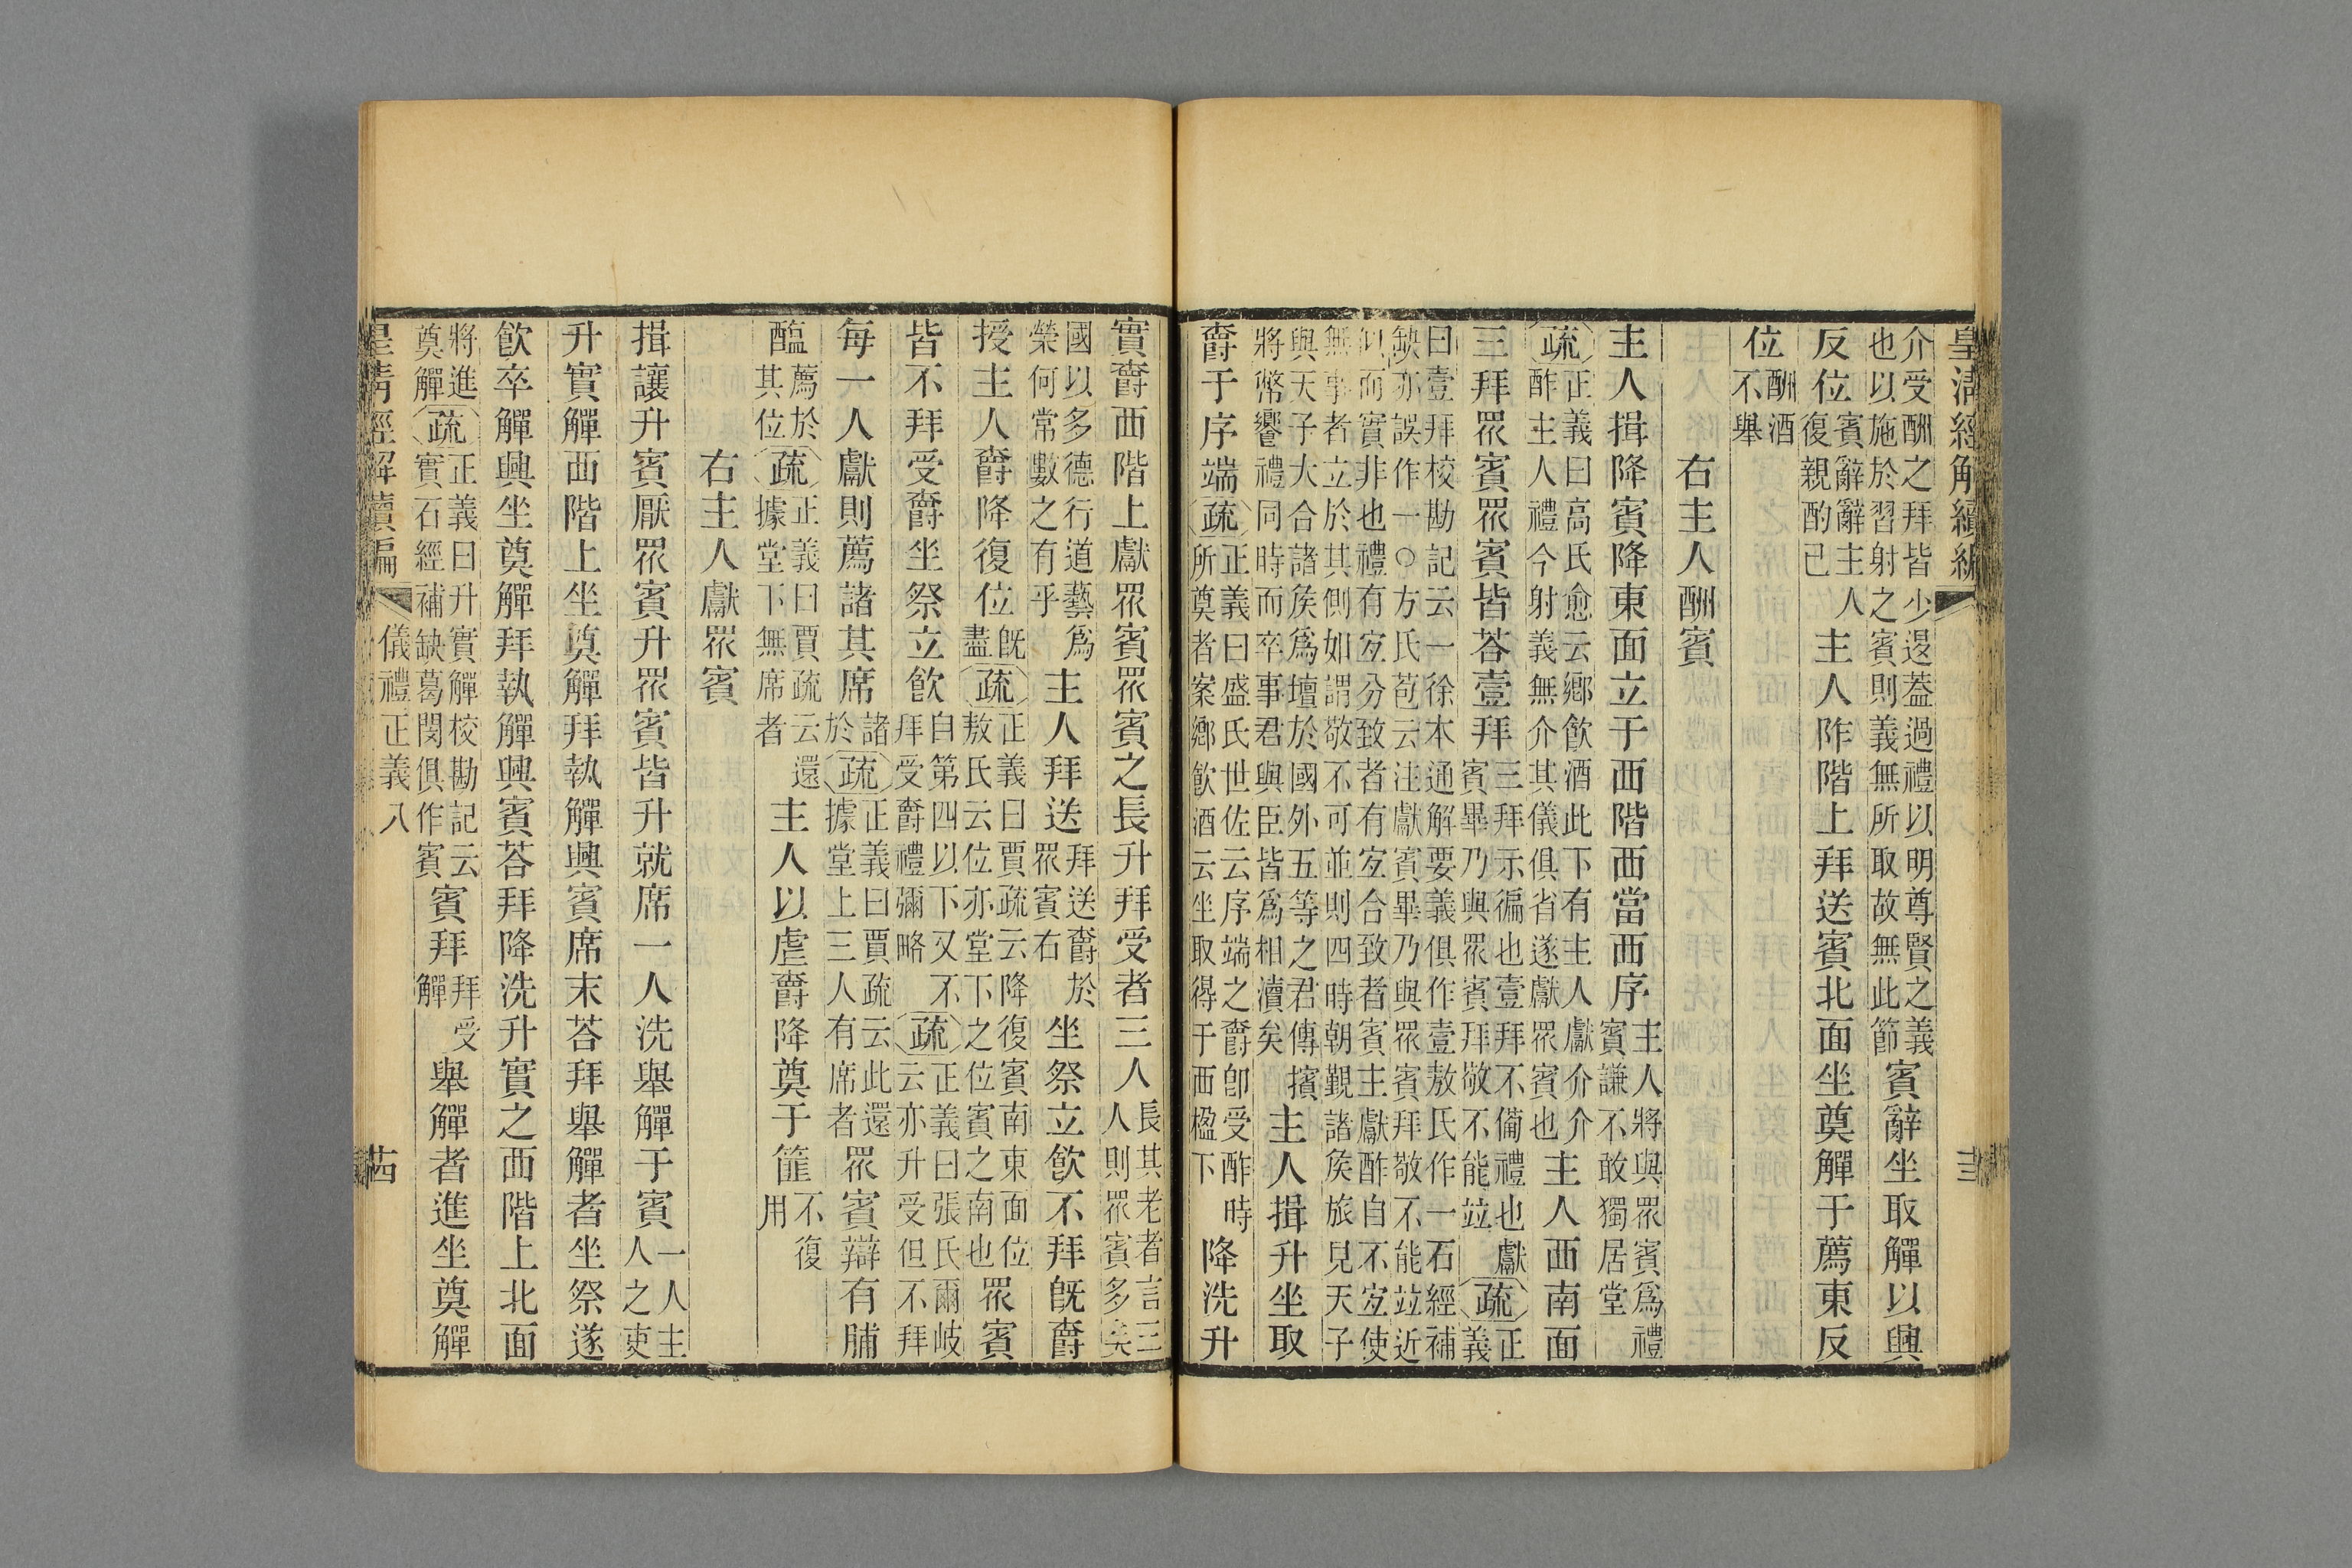 皇清經解續編
介受酬之拜皆少退蓋過禮以明尊賢之義
也以施於習射之賓則義無所取故無此節
賓辭坐取觶以興
反位
賓辭辭主人
復親酌已
主人阼階上拜送賓北面坐奠觶于薦東反
位
酬酒
不舉
右主人酬賓
主人揖降賓降東面立于西階西當西序
主人將與眾賓爲禮
賓謙不敢獨居堂
疏
正義曰高氏愈云鄉飲酒此下有主人獻介介
酢主人禮今射義無介其儀俱省遂獻眾賓也
主人西南面
三拜眾賓眾賓皆荅壹拜
三拜示徧也壹拜不備禮也獻
賓畢乃與眾賓拜敬不能竝
疏
正
義
曰壹拜校勘記云一徐本通解要義俱作壹敖氏作一石經補
缺亦誤作一○方氏苞云注獻賓畢乃與眾賓拜敬不能竝近
似而實非也禮有宐分致者有宐合致者賓主獻酢自不宐使
無事者立於其側如謂敬不可並則四時朝覲諸矦旅見天子
與天子大合諸矦爲壇於國外五等之君傳擯
將幣饗禮同時而卒事君與臣皆爲相瀆矣
主人揖升坐取
爵于序端
疏
正義曰盛氏世佐云序端之爵卽受酢時
所奠者案鄉飲酒云坐取得于西楹下
降洗升
實爵西階上獻眾賓眾賓之長升拜受者三人
長其老者言三
人則眾賓多矣
國以多德行道藝爲
榮何常數之有乎
主人拜送
拜送爵於
眾賓右
坐祭立飲不拜旣爵
授主人爵降復位
旣
盡
疏
正義曰賈疏云降復賓南東面位
敖氏云位亦堂下之位賓之南也
眾賓
皆不拜受爵坐祭立飲
自第四以下又不
拜受爵禮彌略
疏
正義曰張氏爾岐
云亦升受但不拜
每一人獻則薦諸其席
諸
於
疏
正義曰賈疏云此還
據堂上三人有席者
眾賓辯有脯
醢
薦於
其位
疏
正義曰賈疏云還
據堂下無席者
主人以虛爵降奠于篚
不復
用
右主人獻眾賓
揖讓升賓厭眾賓升眾賓皆升就席一人洗舉觶于賓
一人主
人之吏
升實觶西階上坐奠觶拜執觶興賓席末荅拜舉觶者坐祭遂
飲卒觶興坐奠觶拜執觶興賓荅拜降洗升實之西階上北面
將進
奠觶
疏
正義曰升實觶校勘記云
實石經補缺葛閩俱作賓
賓拜
拜受
觶
舉觶者進坐奠觶
皇清經解續編
儀禮正義八